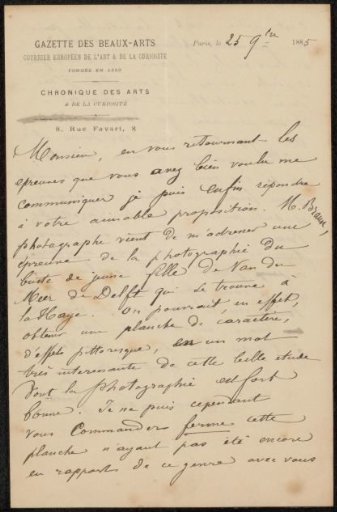 GAZETTE DES BEAUX-ARTS
COURRIER EUROPÉEN DE L'ART & DE LA CURIOSITÉ
FONDÉE EN 1859
CHRONIQUE DES ARTS
& DE LA CURIOSITÉ
8, Rue Favart, 8
Paris, le 25 9bre 1885
Monsieur, en vous retournant les
épreuves que vous avez bien voulu me
communiquer je puis enfin répondre
à votre aimable proposition. M. Braun,
photographe vient de m'adresser une
épreuve de la photographie du
buste de jeune fille de Van der
Meer de Delft qui se trouve à
la Haye. On pourrait en effet,
obtenir une planche de caractère,
d'effet pittoresque, en un mot
très intéressante de cette belle étude
dont la photographie est fort
bonne. Je ne puis cependant
vous commander ferme cette
planche n'ayant pas été encore
en rapports de ce genre avec vous